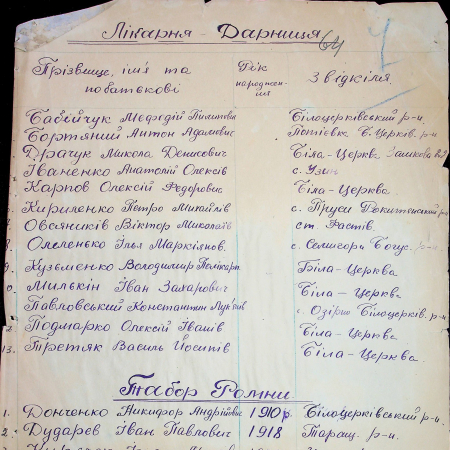 Лікарня - Дарниця 64
Прізвище, ім'я та побатькові Рік народження Звідкіля
Бабійчук Мефодій Пилипов Білоцерківський р-н.
Бортяний Антон Адамович Потіевка Б.Церків. р-н
Драчук Микола Денисович Біла-Церква
Іваненко Анатолій Олексів с. Узин
Карпов Олексій Федорович Біла-Церква
Кириленко Петро Михайлів с. Пруси
Овсяників Віктор Миколаїв ст. Фастів.
8. Оленько Ілья с.
9. Кузьменко Володимир Полікарп. Біла-Церква
0. Милькін Іван Захарович Біла-Церква
Павловський Константин с. Озірна Білоцерків. р-н
2 Подмарко Олексій Іванів Біла-Церква
13. Третяк Василь Йосипів Біла-Церква
Табор Ромни
1. Донченко Никифор Андрійович 1910 р. Білоцерківський р-н.
2. Дударев Іван Павлович 1918 Таращ. р-н.